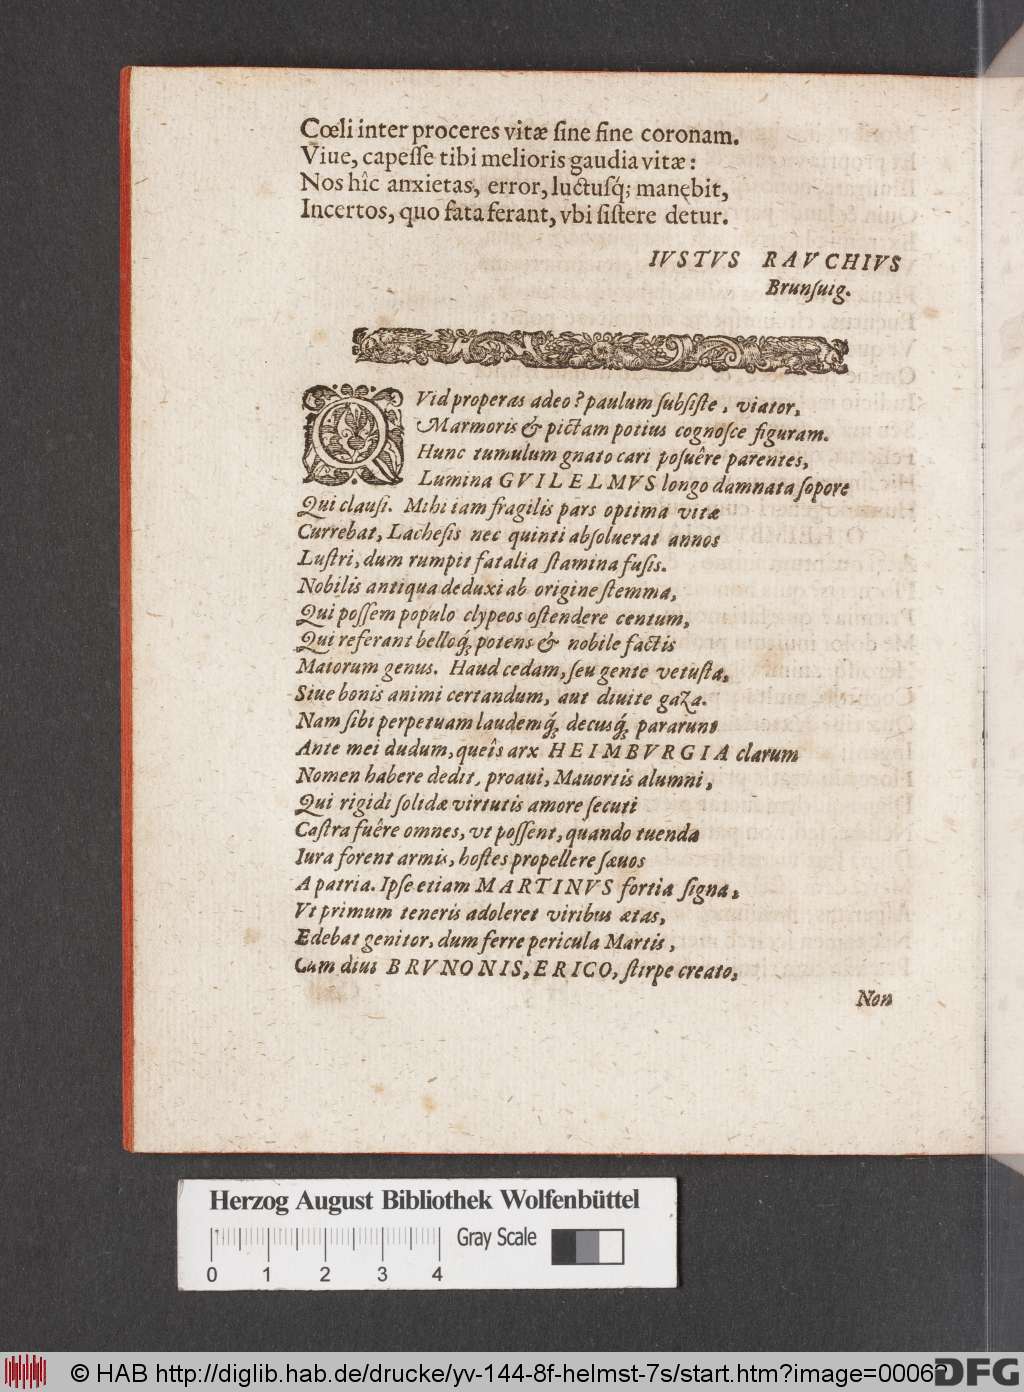 Cœli inter proceres vitæ ſine fine coronam.
Viue, capeſſe tibi melioris gaudia vitæ:
Nos hîc anxietas, error, luctuſq́; manębit,
Incertos, quo fata ferant, vbi ſiſtere detur.
IVSTVS RAVCHIVS
Brunſuig.
QVid properas adeo? paulum ſubſiſte, viator,
Marmoris & pictam potius cognoſce figuram.
Hunc tumulum gnato cari poſuêre parentes,
Lumina GVILELMVS longo damnata ſopore
Qui clauſi. Mihi iam fragilis pars optima vitæ
Currebat, Lacheſis nec quinti abſoluerat annos
Luſtri, dum rumpit fatalia ſtamina fuſis.
Nobilis antiqua deduxi ab origine ſtemma,
Qui poſſem populo clypeos oſtendere centum,
Qui referant belloq́; potens & nobile factis
Maiorum genus. Haud cedam, ſeu gente vetuſta,
Siue bonis animi certandum, aut diuite gaza.
Nam ſibi perpetuam laudemq́; decusq́; pararunt
Ante mei dudum, queîs arx HEIMBVRGIA clarum
Nomen habere dedit, proaui, Mauortis alumni,
Qui rigidi ſolidæ virtutis amore ſecuti
Caſtra fuêre omnes, vt poſſent, quando tuenda
Iura forent armis, hoſtes propellere ſæuos
A patria. Ipſe etiam MARTINVS fortia ſigna,
Vt primum teneris adoleret viribus ætas,
Edebat genitor, dum ferre pericula Martis,
Cum diui BRVNONIS, ERICO, ſtirpe creato,
Non
Herzog August Bibliothek Wolfenbüttel
Gray Scale
0 1 2 3 4
© HAB http://diglib.hab.de/drucke/yv-144-8f-helmst-7s/start.htm?image=00062
DFG